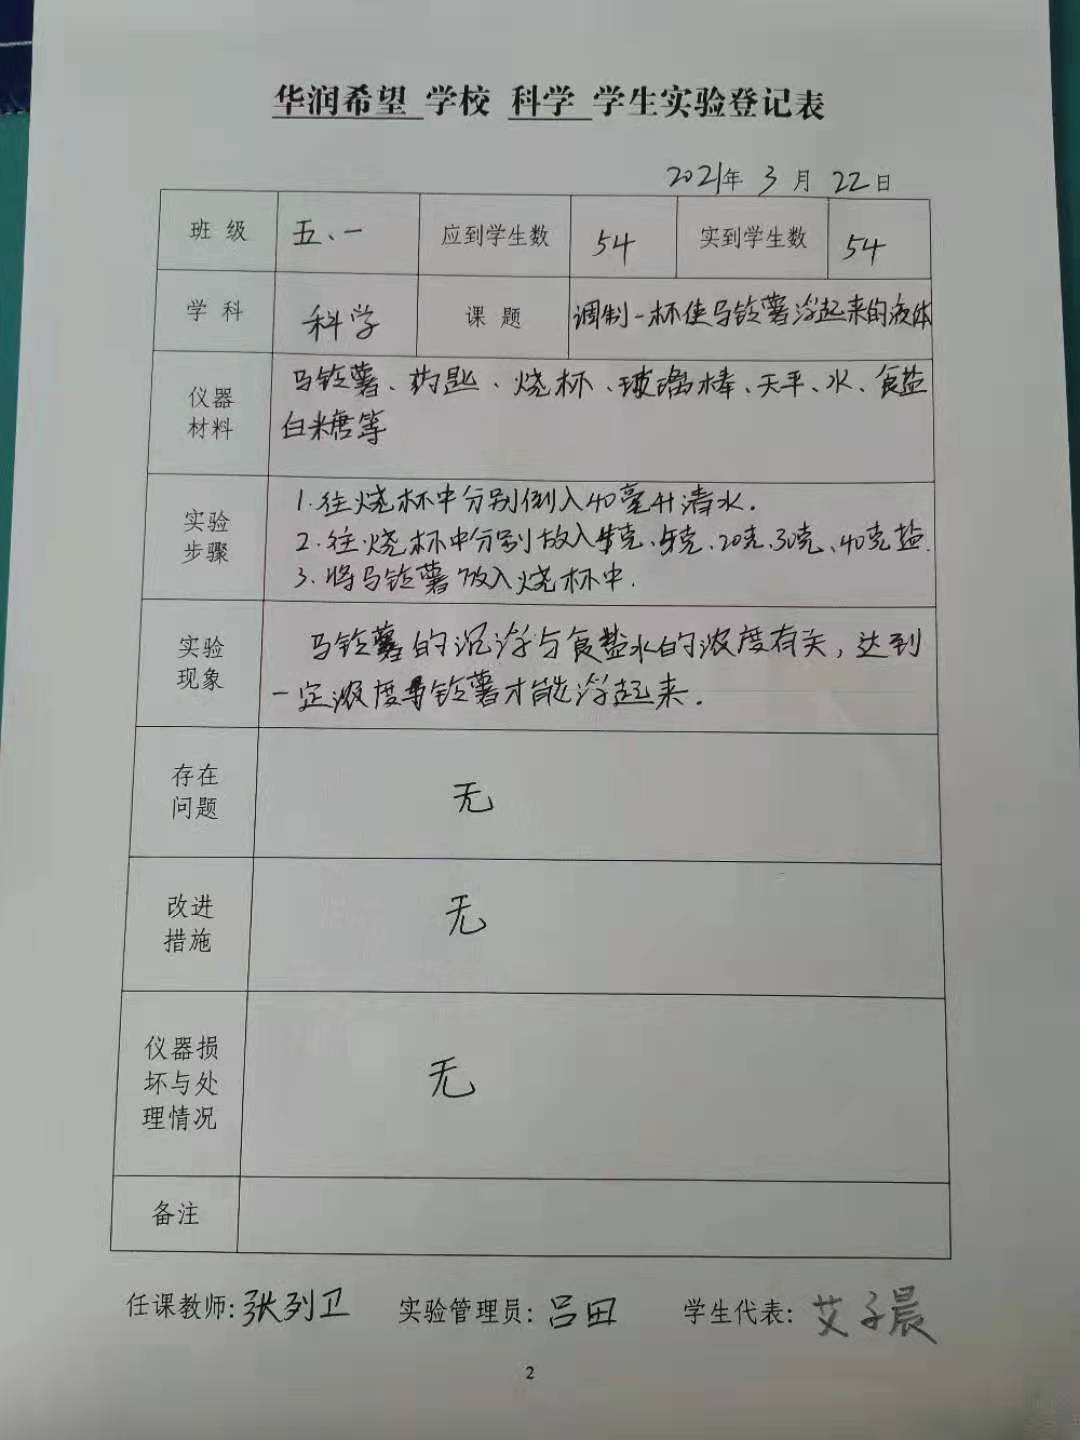 华润希望 学校 科学 学生实验登记表
2021年 3 月 22日
班 级 五、一 应到学生数 54 实到学生数 54
学 科 科学 课 题 调制一杯使马铃薯浮起来的液体
仪器
材料
马铃薯、药匙、烧杯、玻璃棒、天平、水、食盐
白糖等
实验
步骤
1.往烧杯中分别倒入40毫升清水.
2.往烧杯中分别放入 克、 克、20克、30克、40克盐.
3.将马铃薯放入烧杯中.
实验
现象
马铃薯的沉浮与食盐水的浓度有关,达到
一定浓度马铃薯才能浮起来.
存在
问题
无
改进
措施
无
仪器损
坏与处
理情况
无
备注
任课教师:张列卫 实验管理员:吕田 学生代表:艾子晨
2